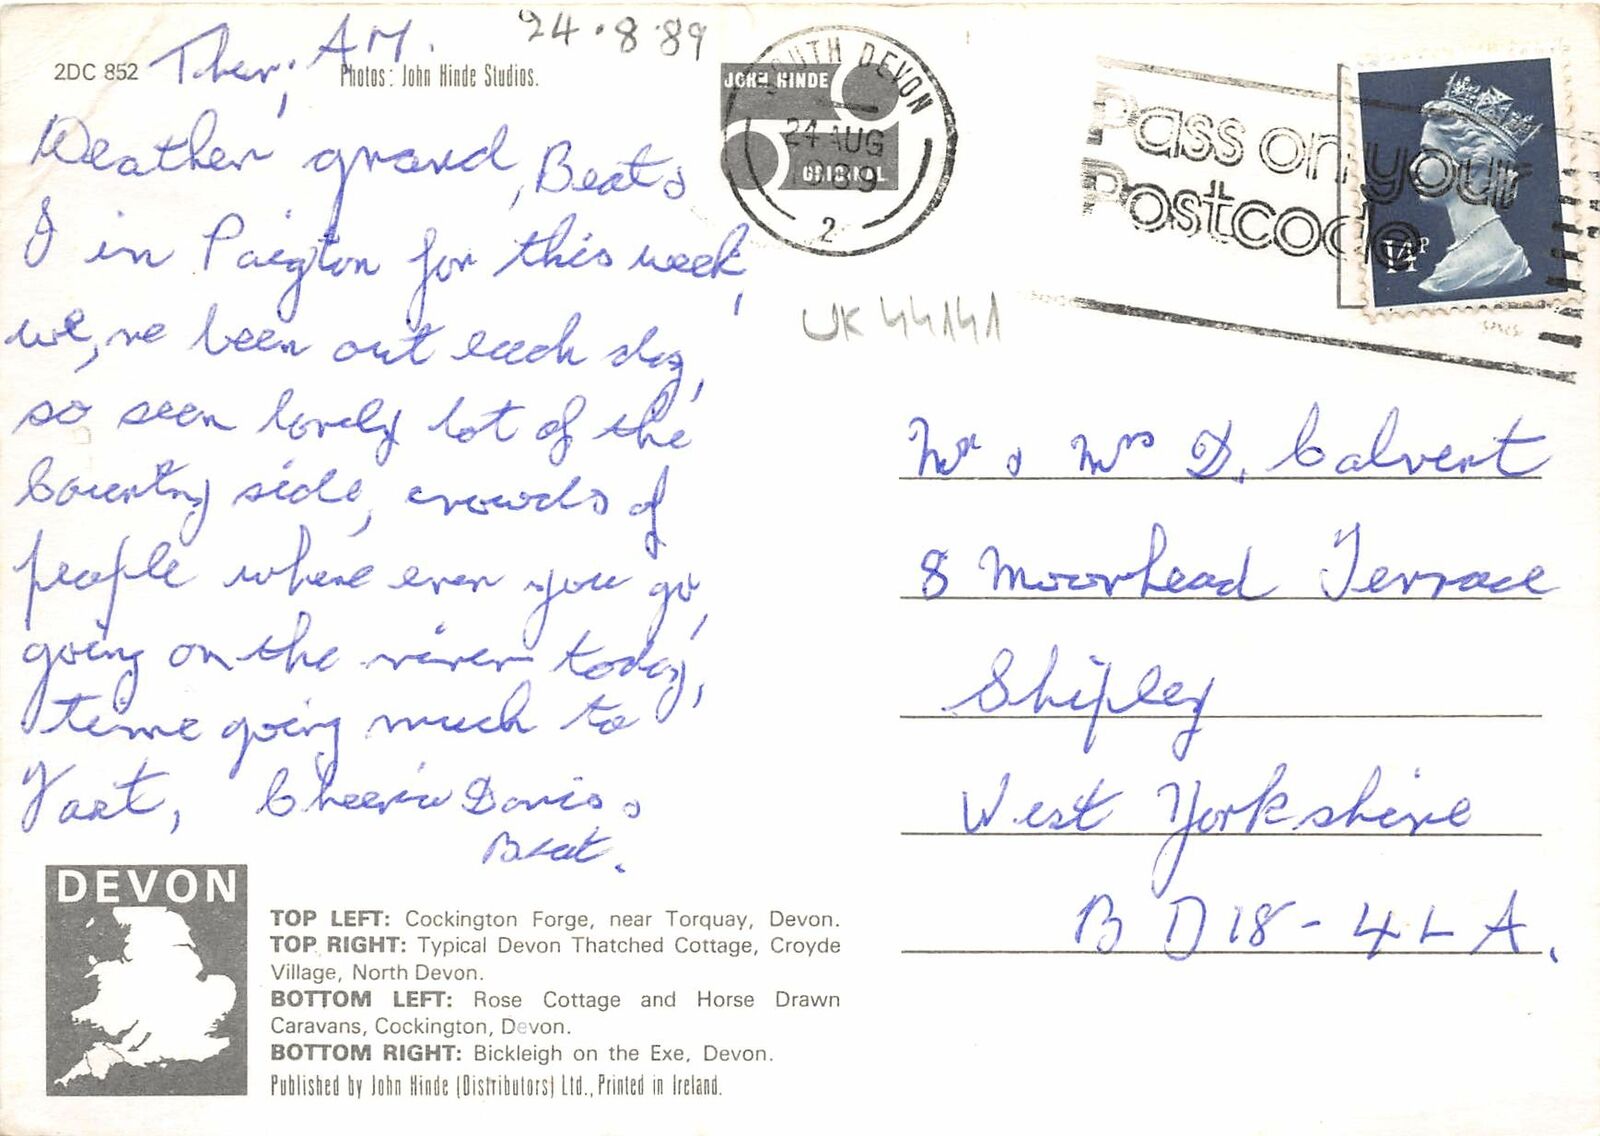 2DC 852
Ther; A M.
24.8.89
Photos: John Hinde Studios.
Weather grand, Beat &
I in Paigton for this week,
we,ve been out each day,
so seen lovely lot of the
Country side, crowds of
people where ever you go,
going on the river today,
time going much to
Fast, Cheerio Doris &
Beat.
JOHN HINDE
ORIGINAL
SOUTH DEVON
24 AUG
1989
2
Pass on your
Postcode
14P
UK 44141
Mr & Mrs D. Calvert
8 Moorhead Terrace
Shipley
West Yorkshire
BD18-4LA.
DEVON
TOP LEFT: Cockington Forge, near Torquay, Devon.
TOP RIGHT: Typical Devon Thatched Cottage, Croyde
Village, North Devon.
BOTTOM LEFT: Rose Cottage and Horse Drawn
Caravans, Cockington, Devon.
BOTTOM RIGHT: Bickleigh on the Exe, Devon.
Published by John Hinde (Distributors) Ltd., Printed in Ireland.